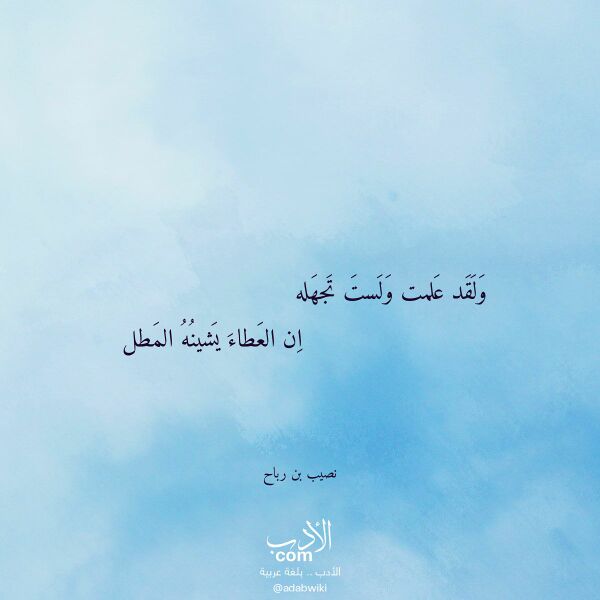 وَلَقَد عَلمت وَلَستَ تَجهَله
اِن العَطاءَ يَشينُهُ المَطل
نصيب بن رباح
الأدب
com
الأدب .. بلغة عربية
@adabwiki